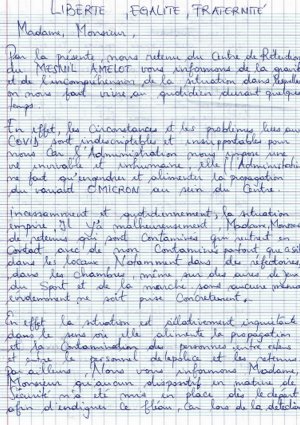 LIBERTE, EGALITE, FRATERNITÉ
Madame, Monsieur,
Par la présente, nous retenu du Centre de Rétention
du MESNIL AMELOT vous informons de la gravité
et de l'incompréhension de la situation dans laquelle
on nous fait vivre au quotidien durant quelques
temps.
En effet, les circonstances et les problèmes liées au
COVID sont indescriptibles et insupportables pour
nous Car l'Administration nous impose une
vie invivable et inhumaine, elle l'Administration
ne fait qu'engendrer et alimenter la propagation
du OMICRON au sein du Centre.
Incessamment et quotidiennement, la situation
empire, Il y'a malheureusement, Madame, Monsieur
de retenus qui sont contaminés qui rentrent en
Contact avec de non Contaminés partout que ce soit
dans les locaux Notamment dans les réfectoires,
dans les chambres même sur des aires de jeux
du Sport et de la marche sans aucune mesure
évidemment ne soit prise Concrètement.
En effet la situation est inquiétante
dans le sens où elle alimente la propagation
et la contamination des personnes entre elles
et entre le personnel de police et les retenus
par ailleurs, Nous vous informons Madame,
Monsieur qu'aucun dispositif en matière de
Sécurité n'a été mis en place dès le départ
afin d'endiguer ce fléau, car lors de la détection